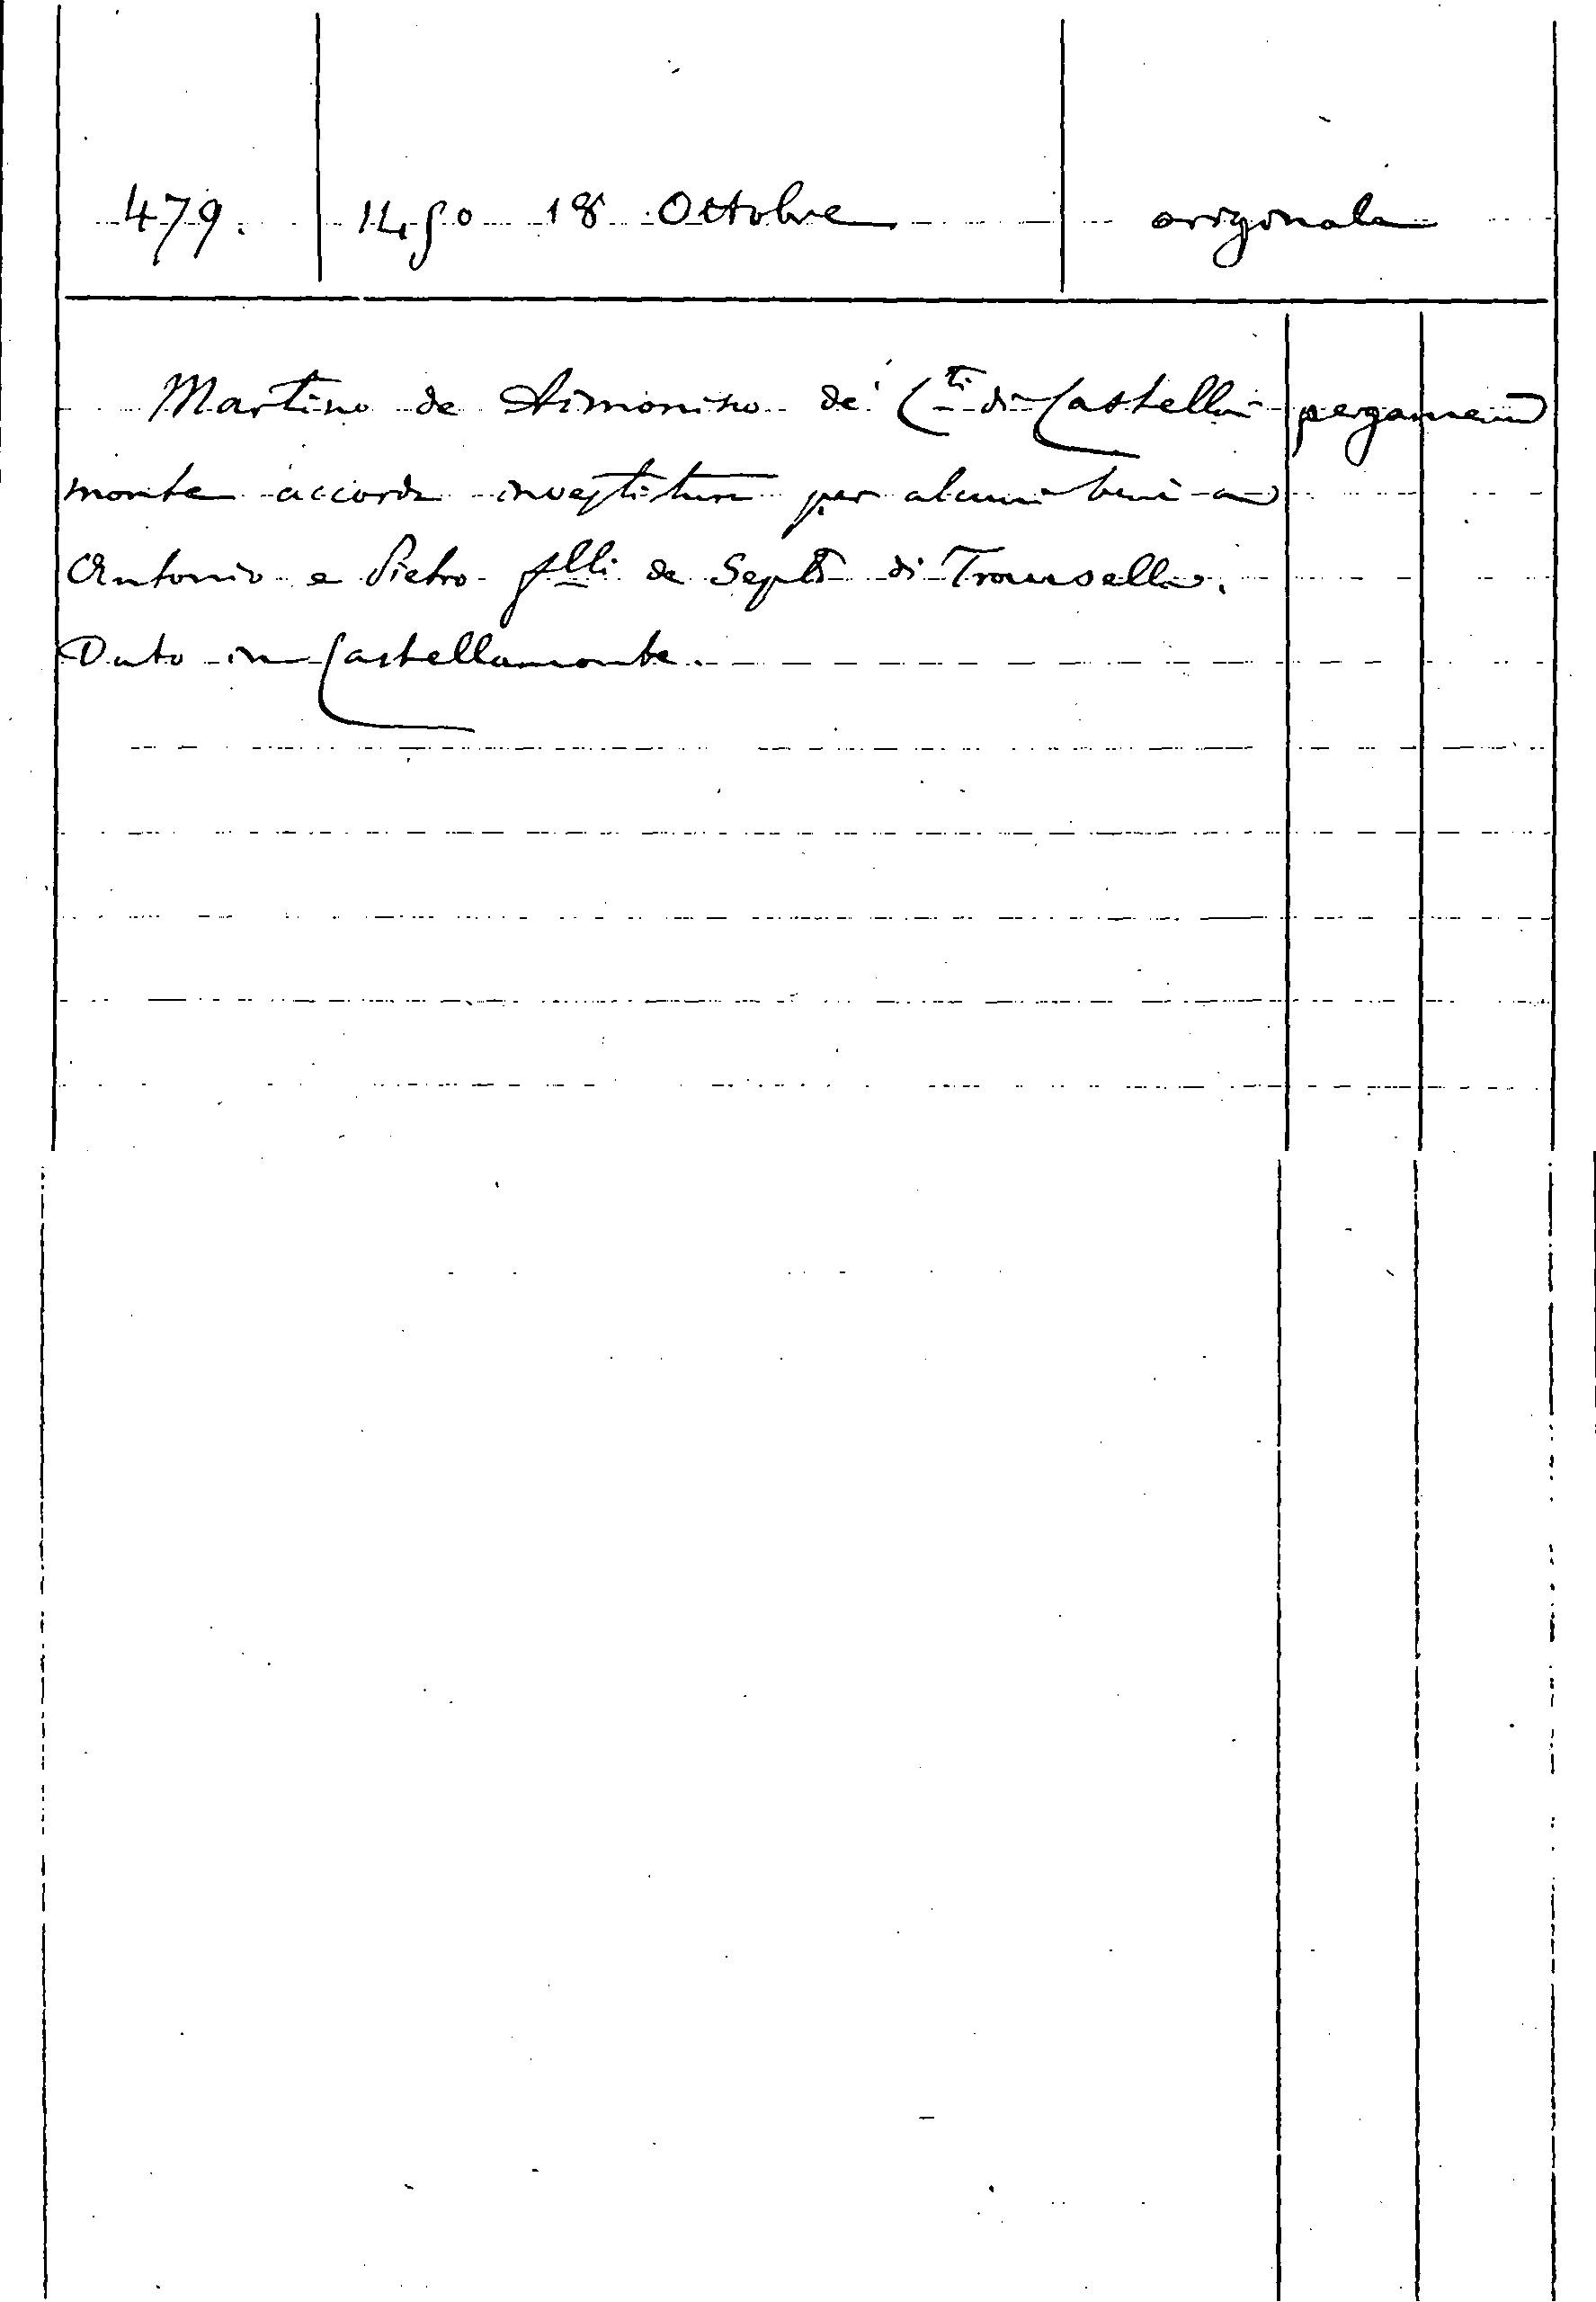 479. 1450 18 Ottobre originale
Martino de Aimonino de' Cti di Castella- pergamena
monte accorda investitura per alcuni beni ad
Antonio e Pietro flli de Septo di Trausella.
Dato in Castellamonte.